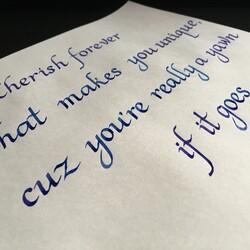 Cherish forever
what makes you unique,
cuz you're really a yawn
if it goes